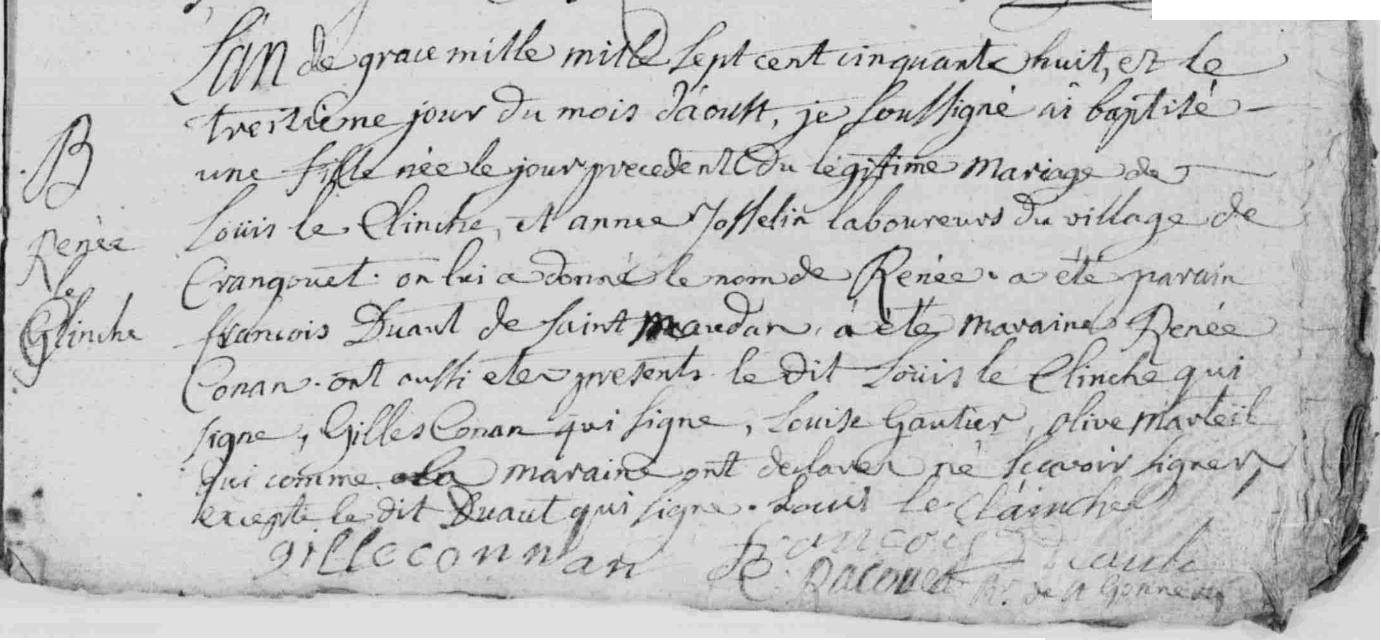 L'an de grace mille mille sept cent cinquante huit, et le
treizième jour du mois d'aoust, je soussigné ai baptisé
B
une fille née le jour precedent du légitime mariage de
Loüis le Clinche, et annee Josselin laboureurs du village de
Renée
le
Clinche
Cranqouet. on lui a donné le nom de Renée. a été parain
francois Duaut de saint Maudan, a été maraine Renée
Conan. ont aussi etes presents le dit Loüis le Clinche qui
signe, Gilles Conan qui signe, Louise Gautier, olive Marteil
qui comme la maraine ont declarer ne scavoir signer,
excepte le dit Duaut qui signe. Louis le Clainche
gille connan francois Duault